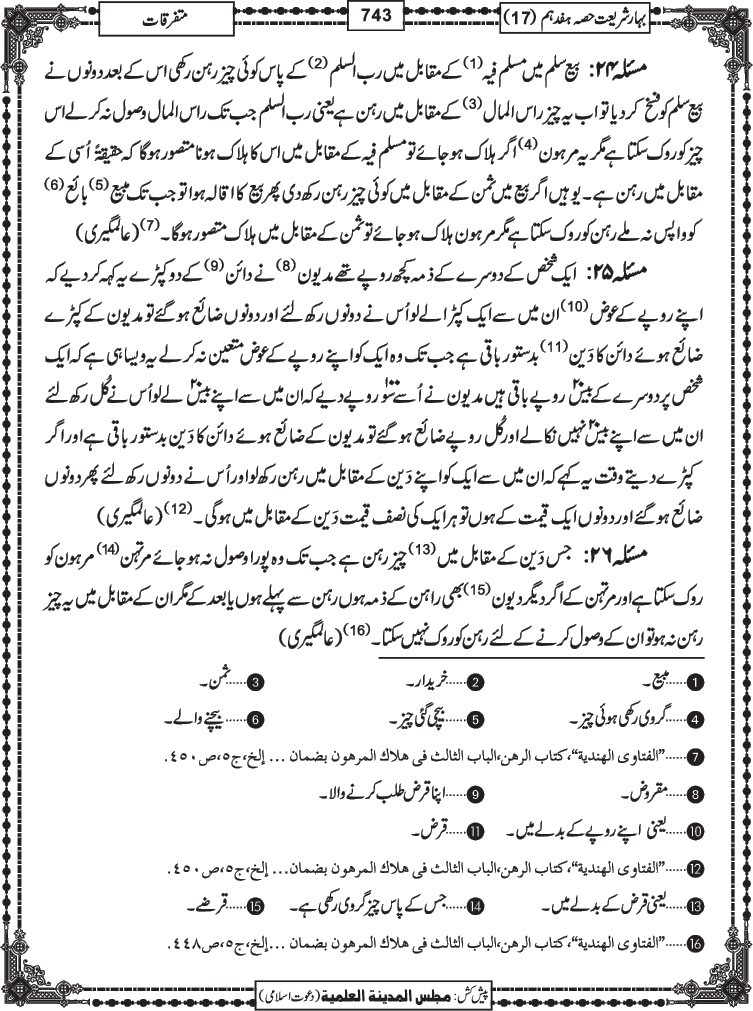 بہار شریعت حصہ ہفدہم (17)
743
متفرقات
مسئلہ ۲۴: بیع سلم میں مسلم فیہ (1) کے مقابل میں رب السلم (2) کے پاس کوئی چیز رہن رکھی اس کے بعد دونوں نے
بیع سلم کو فسخ کر دیا تو اب یہ چیز راس المال (3) کے مقابل میں رہن ہے یعنی رب السلم جب تک راس المال وصول نہ کرلے اس
چیز کو روک سکتا ہے مگر یہ مرہون (4) اگر ہلاک ہو جائے تو مسلم فیہ کے مقابل میں اس کا ہلاک ہونا متصور ہوگا کہ حقیقۃً اُسی کے
مقابل میں رہن ہے۔ یوہیں اگر بیع میں ثمن کے مقابل میں کوئی چیز رہن رکھ دی پھر بیع کا اقالہ ہوا تو جب تک مبیع (5) بائع (6)
کو واپس نہ ملے رہن کو روک سکتا ہے مگر مرہون ہلاک ہو جائے تو ثمن کے مقابل میں ہلاک متصور ہوگا۔ (7) (عالمگیری)
مسئلہ ۲۵: ایک شخص کے دوسرے کے ذمہ کچھ روپے تھے مدیون (8) نے دائن (9) کے دو کپڑے یہ کہہ کر دیے کہ
اپنے روپے کے عوض (10) ان میں سے ایک کپڑا لے لو اُس نے دونوں رکھ لئے اور دونوں ضائع ہو گئے تو مدیون کے کپڑے
ضائع ہوئے دائن کا دَین (11) بدستور باقی ہے جب تک وہ ایک کو اپنے روپے کے عوض متعین نہ کرلے یہ ویسا ہی ہے کہ ایک
شخص پر دوسرے کے بیس۲۰ روپے باقی ہیں مدیون نے اُسے سو۱۰۰ روپے دیے کہ ان میں سے اپنے بیس۲۰ لے لو اُس نے کُل رکھ لئے
ان میں سے اپنے بیس۲۰ نہیں نکالے اور کُل روپے ضائع ہو گئے تو مدیون کے ضائع ہوئے دائن کا دَین بدستور باقی ہے اور اگر
کپڑے دیتے وقت یہ کہے کہ ان میں سے ایک کو اپنے دَین کے مقابل میں رہن رکھ لو اور اُس نے دونوں رکھ لئے پھر دونوں
ضائع ہو گئے اور دونوں ایک قیمت کے ہوں تو ہر ایک کی نصف قیمت دَین کے مقابل میں ہوگی۔ (12) (عالمگیری)
مسئلہ ۲۶: جس دَین کے مقابل میں (13) چیز رہن ہے جب تک وہ پورا وصول نہ ہو جائے مرتہن (14) مرہون کو
روک سکتا ہے اور مرتہن کے اگر دیگر دیون (15) بھی راہن کے ذمہ ہوں رہن سے پہلے ہوں یا بعد کے مگر ان کے مقابل میں یہ چیز
رہن نہ ہو تو ان کے وصول کرنے کے لئے رہن کو روک نہیں سکتا۔ (16) (عالمگیری)
1......مبیع۔ 2......خریدار۔ 3......ثمن۔
4......گروی رکھی ہوئی چیز۔ 5......بیچی گئی چیز۔ 6......بیچنے والے۔
7......"الفتاوی الهندیة"،کتاب الرهن،الباب الثالث فی هلاك المرهون بضمان ... إلخ،ج٥،ص٤٥٠.
8......مقروض۔ 9......اپنا قرض طلب کرنے والا۔
10......یعنی اپنے روپے کے بدلے میں۔ 11......قرض۔
12......"الفتاوی الهندیة"،کتاب الرهن،الباب الثالث فی هلاك المرهون بضمان... إلخ،ج٥،ص٤٥٠.
13......یعنی قرض کے بدلے میں۔ 14......جس کے پاس چیز گروی رکھی ہے۔ 15......قرضے۔
16......"الفتاوی الهندیة"،کتاب الرهن،الباب الثالث فی هلاك المرهون بضمان ...إلخ،ج٥،ص٤٤٨.
پیش کش: مجلس المدینة العلمیة (دعوت اسلامی)